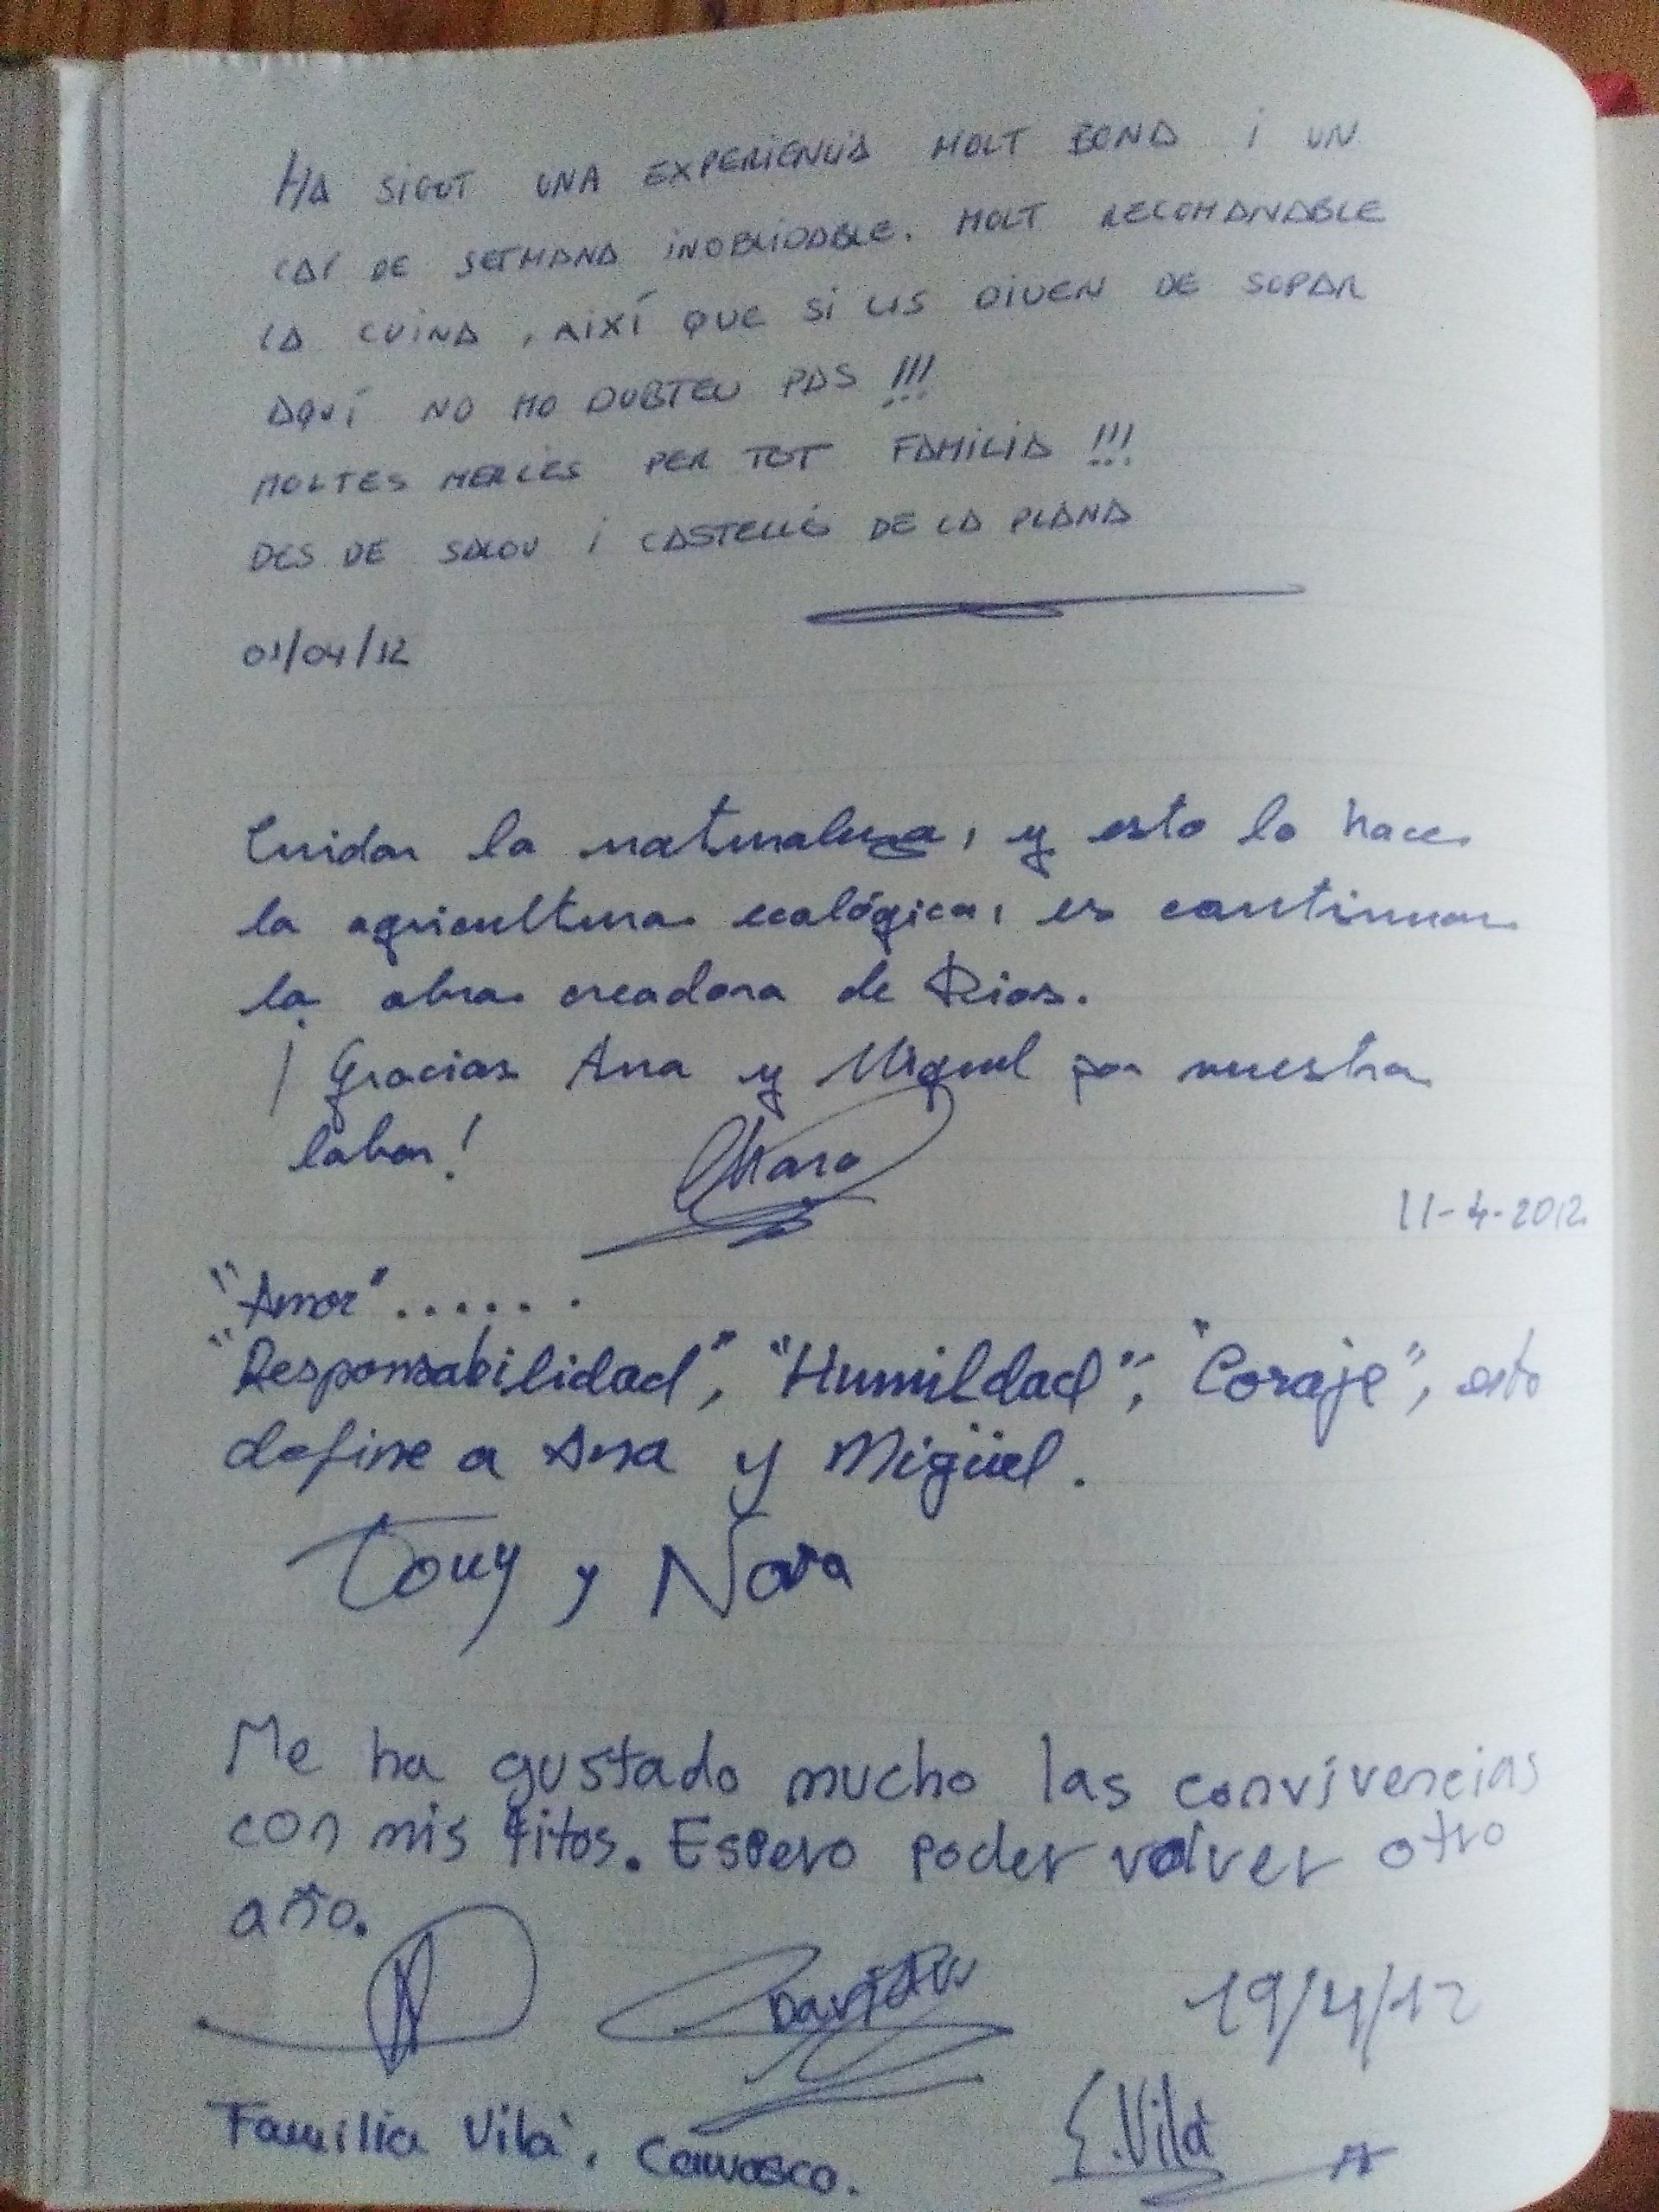 HA SIGUT UNA EXPERIENCIA MOLT BONA I UN
CAP DE SETMANA INOBLIDABLE. MOLT RECOMANABLE
LA CUINA, AIXÍ QUE SI US DIUEN DE SOPAR
AQUÍ NO HO DUBTEU PAS!!!
MOLTES MERCÈS PER TOT FAMILIA!!!
DES DE SALOU I CASTELLÓ DE LA PLANA
01/04/12
Cuidar la naturaleza, y esto lo hace
la agricultura ecológica, es continuar
la obra creadora de Dios.
¡Gracias Ana y Miguel por vuestra
labor!
11-4-2012
"Amor"......
"Responsabilidad", "Humildad", "Coraje", esto
define a Ana y Migüel.
Tony y Nora
Me ha gustado mucho las convivencias
con mis titos. Espero poder volver otro
año.
19/4/12
Familia Vilà, Carrasco.
E. Vilà